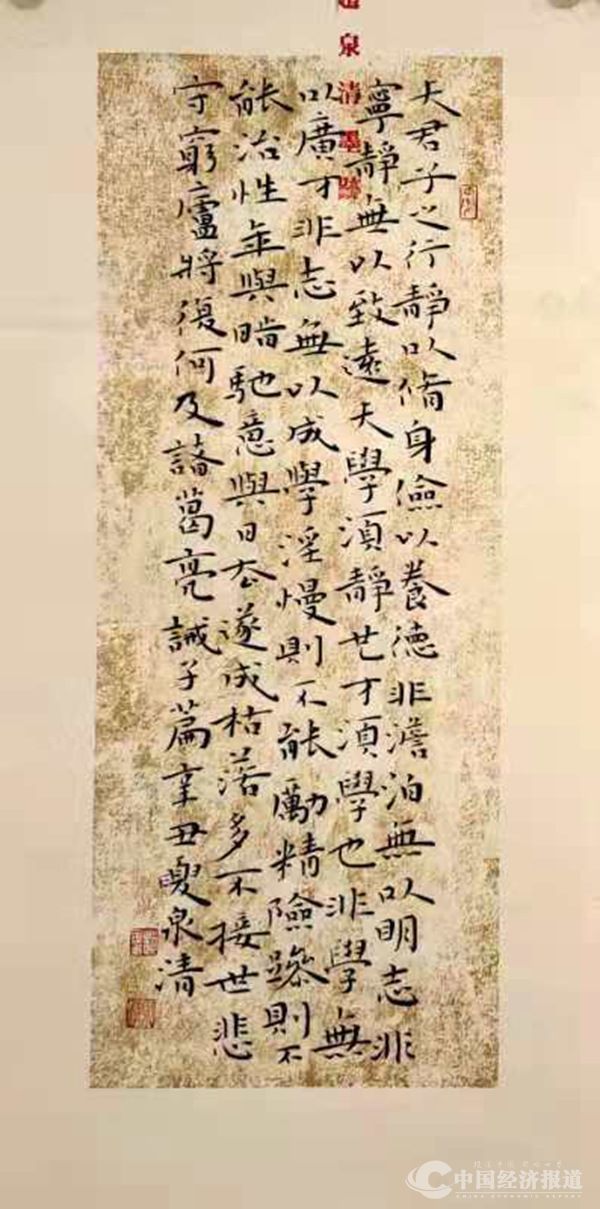 夫君子之行靜以脩身儉以養德非澹泊無以明志非
寧靜無以致遠夫學須靜也才須學也非學無
以廣才非志無以成學淫慢則不能勵精險躁則不
能治性年與時馳意與日去遂成枯落多不接世悲
守窮廬將復何及諸葛亮誡子篇辛丑夏泉清
泉清墨跡
中国经济报道
CHINA ECONOMIC REPORT